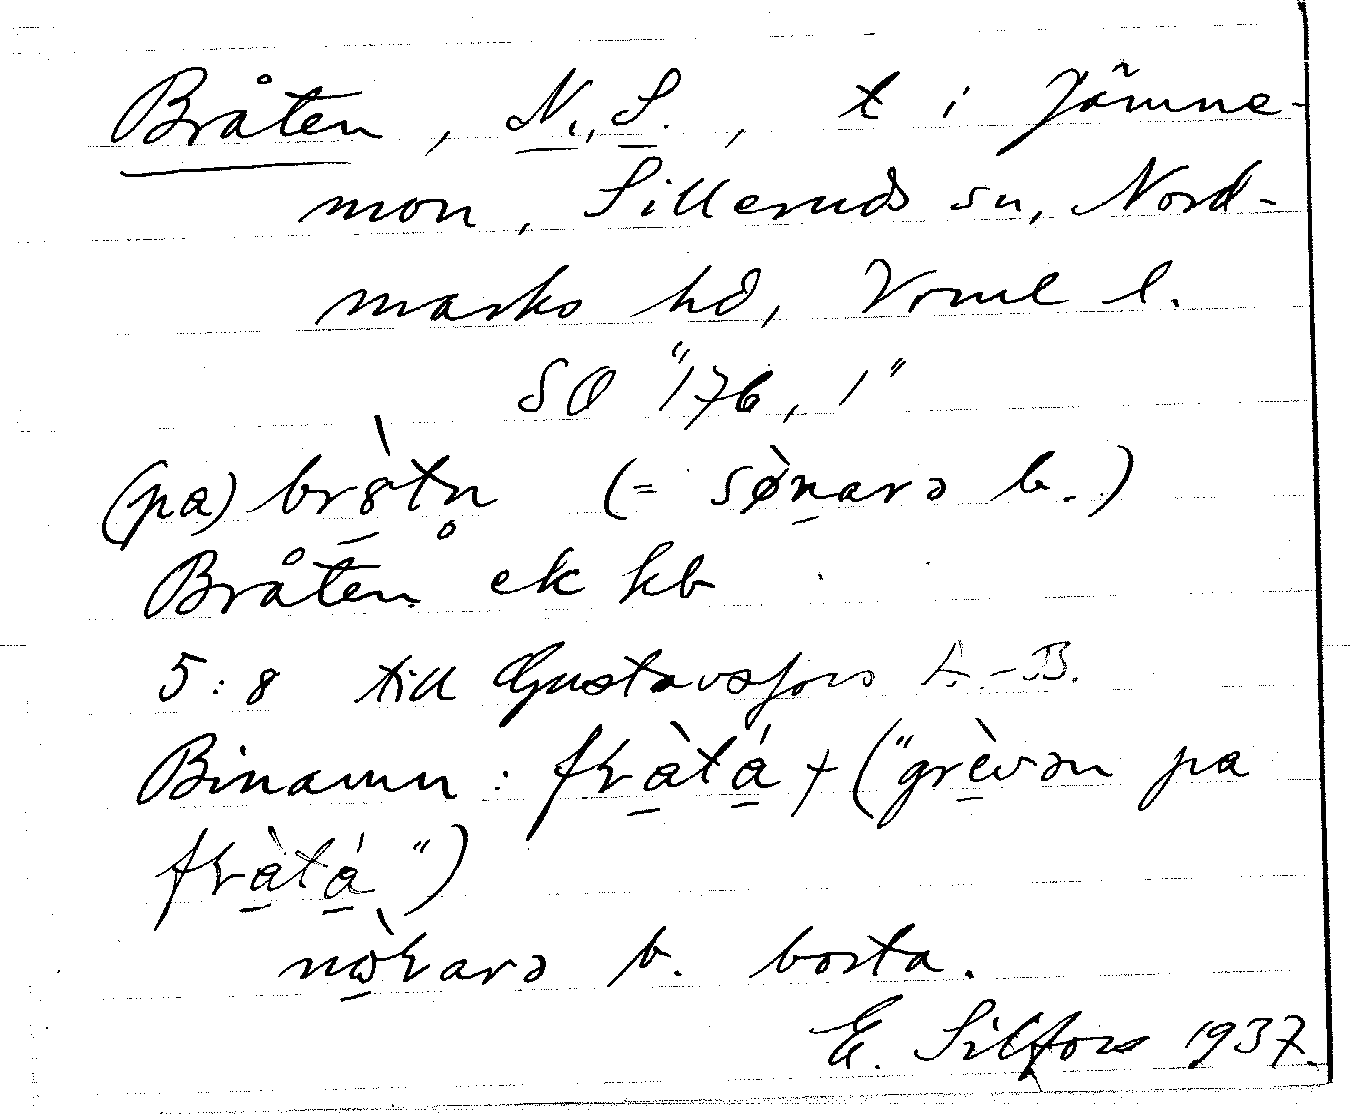 Bråten, N., S., t i Jämne-
mon, Silleruds sn, Nord-
marks hd, Vrml l.
SO "176, 1"
(pa) br8̀tn̥ (= sø̀narə b.)
Bråten ek kb
5:8 till Gustavsfors A.-B.
Binamn: fkàtá + ("grèvən pa
fkàtá")
nɷ̀karə b. borta.
E. Silfors 1937.